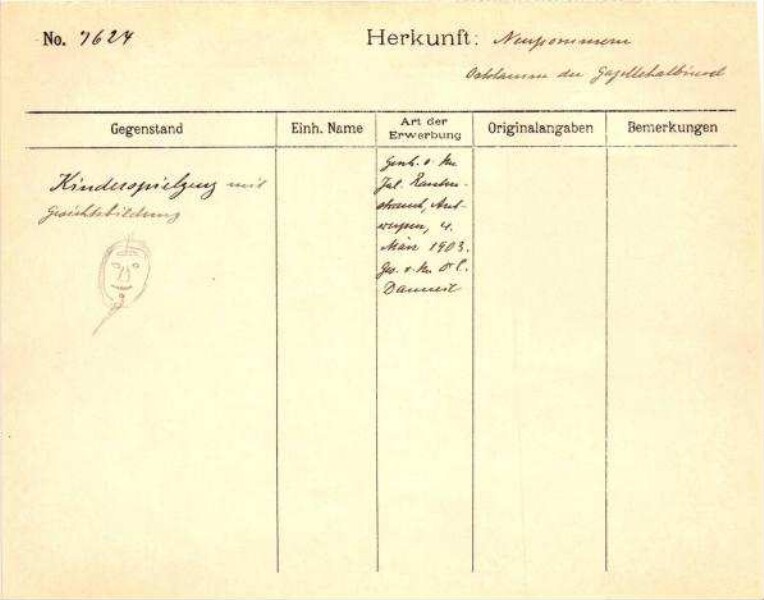 No. 7624 Herkunft: Neupommern
der Gazellehalbinsel
Gegenstand Einh. Name Art der Erwerbung Originalangaben Bemerkungen
Kinderspielzeug mit
Gesichtsbildung
Gesch. v. Hn.
Jul. Rauten-
strauch, Ant-
werpen, 4.
März 1903.
Ges. v. Hn.